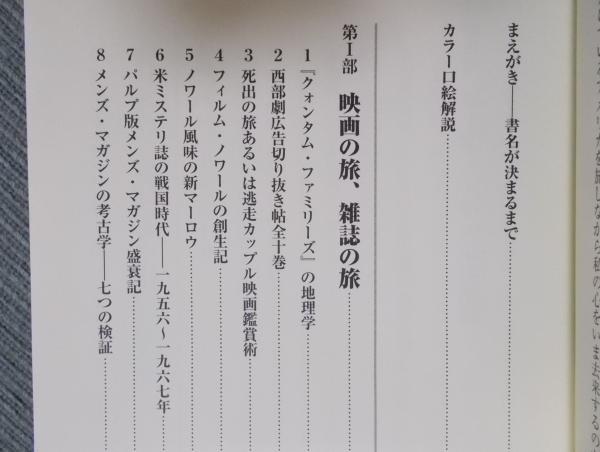 ていくアメリカを旅しながら私の心をいま去来するの
まえがき――書名が決まるまで
カラー口絵解説
第Ⅰ部 映画の旅、雑誌の旅
1 『クォンタム・ファミリーズ』の地理学
2 西部劇広告切り抜き帖全十巻
3 死出の旅あるいは逃走カップル映画鑑賞術
4 フィルム・ノワールの創生記
5 ノワール風味の新マーロウ
6 米ミステリ誌の戦国時代――一九五六~一九六七年
7 パルプ版メンズ・マガジン盛衰記
8 メンズ・マガジンの考古学――七つの検証